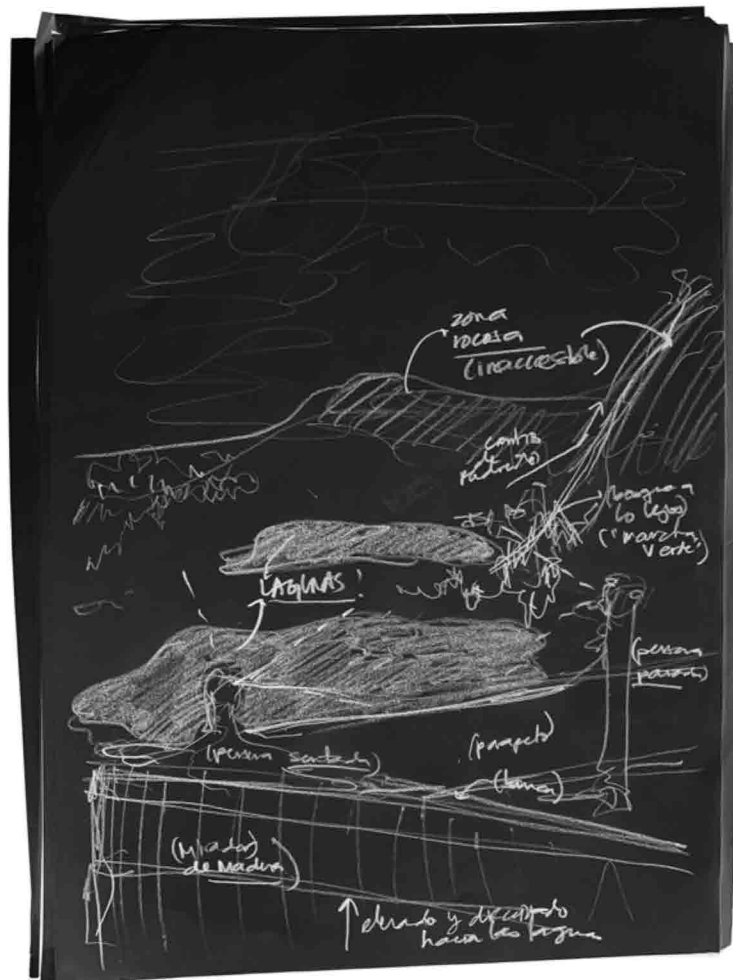 zona
rocosa
(inaccesible)
lo lejos)
("mancha
verde")
LAGUNAS!
(persona
parada)
(persona sentada)
(parapeto)
(Mirador)
de Madera)
elevado y
hacia las lagunas